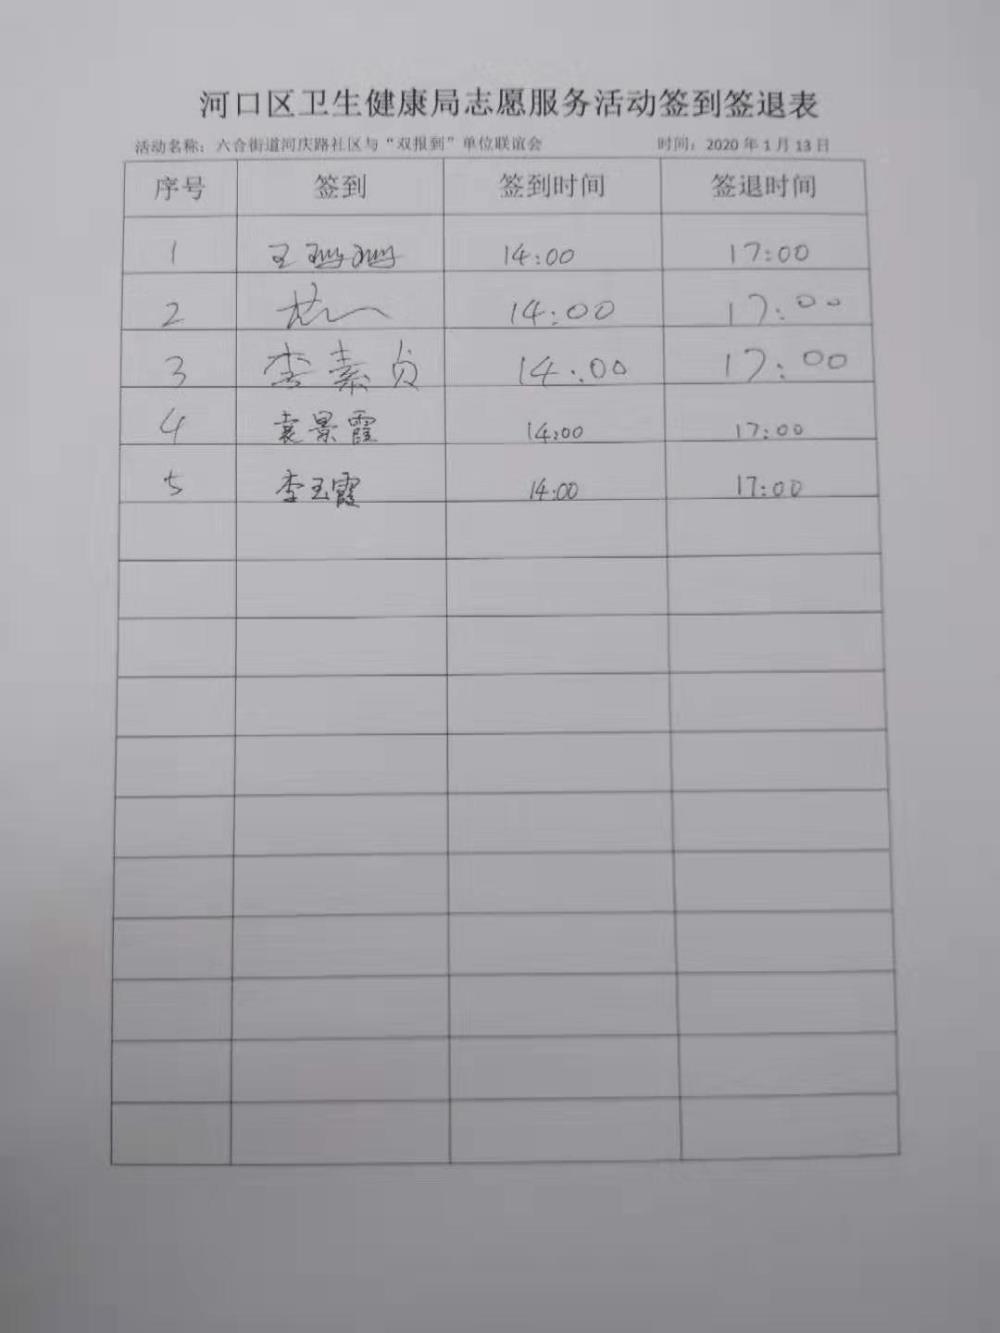 河口区卫生健康局志愿服务活动签到签退表
活动名称：六合街道河庆路社区与“双报到”单位联谊会 时间：2020 年 1 月 13 日
序号 签到 签到时间 签退时间
1 王珊珊 14:00 17:00
2 14:00 17:00
3 李素贞 14:00 17:00
4 袁景霞 14:00 17:00
5 李玉霞 14:00 17:00